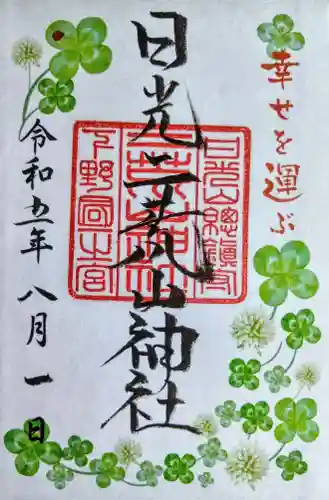 幸せを運ぶ
日光二荒山神社
令和五年八月一日
日光山総鎮守
下野国一之宮